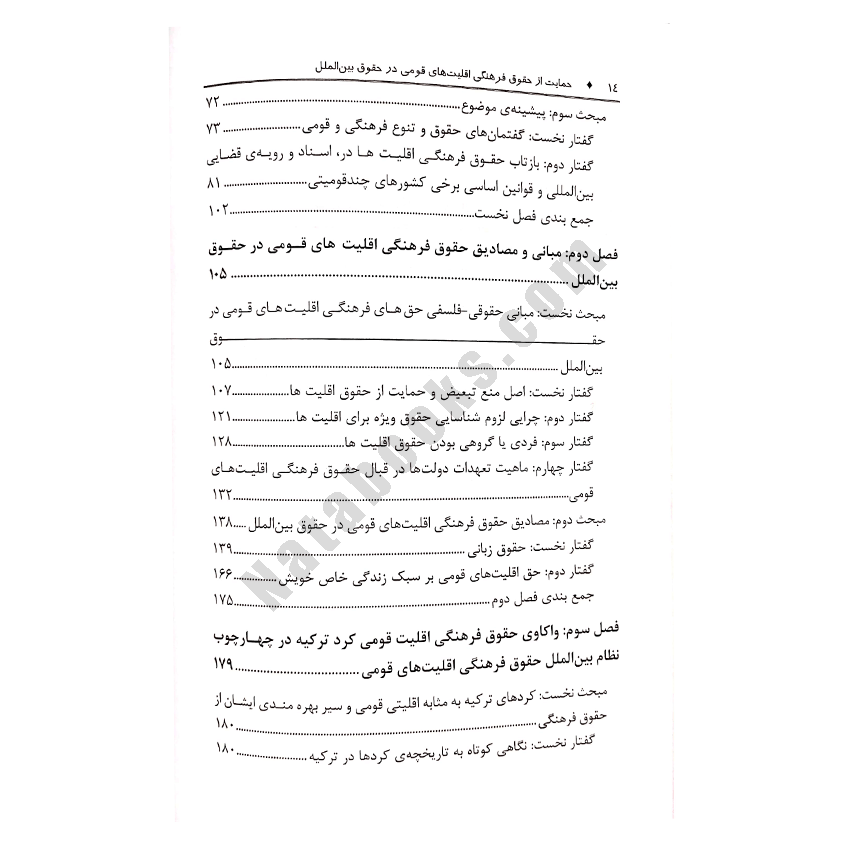 ۱٤ ♦ حمایت از حقوق فرهنگی اقلیت‌های قومی در حقوق بین‌الملل
مبحث سوم: پیشینه‌ی موضوع ۷۲
گفتار نخست: گفتمان‌های حقوق و تنوع فرهنگی و قومی ۷۳
گفتار دوم: بازتاب حقوق فرهنگی اقلیت ها در، اسناد و رویه‌ی قضایی
بین‌المللی و قوانین اساسی برخی کشورهای چندقومیتی ۸۱
جمع بندی فصل نخست ۱۰۲
فصل دوم: مبانی و مصادیق حقوق فرهنگی اقلیت های قومی در حقوق
بین‌الملل ۱۰۵
مبحث نخست: مبانی حقوقی-فلسفی حق های فرهنگی اقلیت های قومی در
حقوق
بین‌الملل ۱۰۵
گفتار نخست: اصل منع تبعیض و حمایت از حقوق اقلیت ها ۱۰۷
گفتار دوم: چرایی لزوم شناسایی حقوق ویژه برای اقلیت ها ۱۲۱
گفتار سوم: فردی یا گروهی بودن حقوق اقلیت ها ۱۲۸
گفتار چهارم: ماهیت تعهدات دولت‌ها در قبال حقوق فرهنگی اقلیت‌های
قومی ۱۳۲
مبحث دوم: مصادیق حقوق فرهنگی اقلیت‌های قومی در حقوق بین‌الملل ۱۳۸
گفتار نخست: حقوق زبانی ۱۳۹
گفتار دوم: حق اقلیت‌های قومی بر سبک زندگی خاص خویش ۱۶۶
جمع بندی فصل دوم ۱۷۵
فصل سوم: واکاوی حقوق فرهنگی اقلیت قومی کرد ترکیه در چهارچوب
نظام بین‌الملل حقوق فرهنگی اقلیت‌های قومی ۱۷۹
مبحث نخست: کردهای ترکیه به مثابه اقلیتی قومی و سیر بهره مندی ایشان از
حقوق فرهنگی ۱۸۰
گفتار نخست: نگاهی کوتاه به تاریخچه‌ی کردها در ترکیه ۱۸۰
Natabooks.com